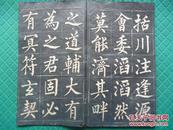 括川注逢源
會委滔滔然
莫能濟其畔
之道輔大有
為之君固必
有冥符玄契